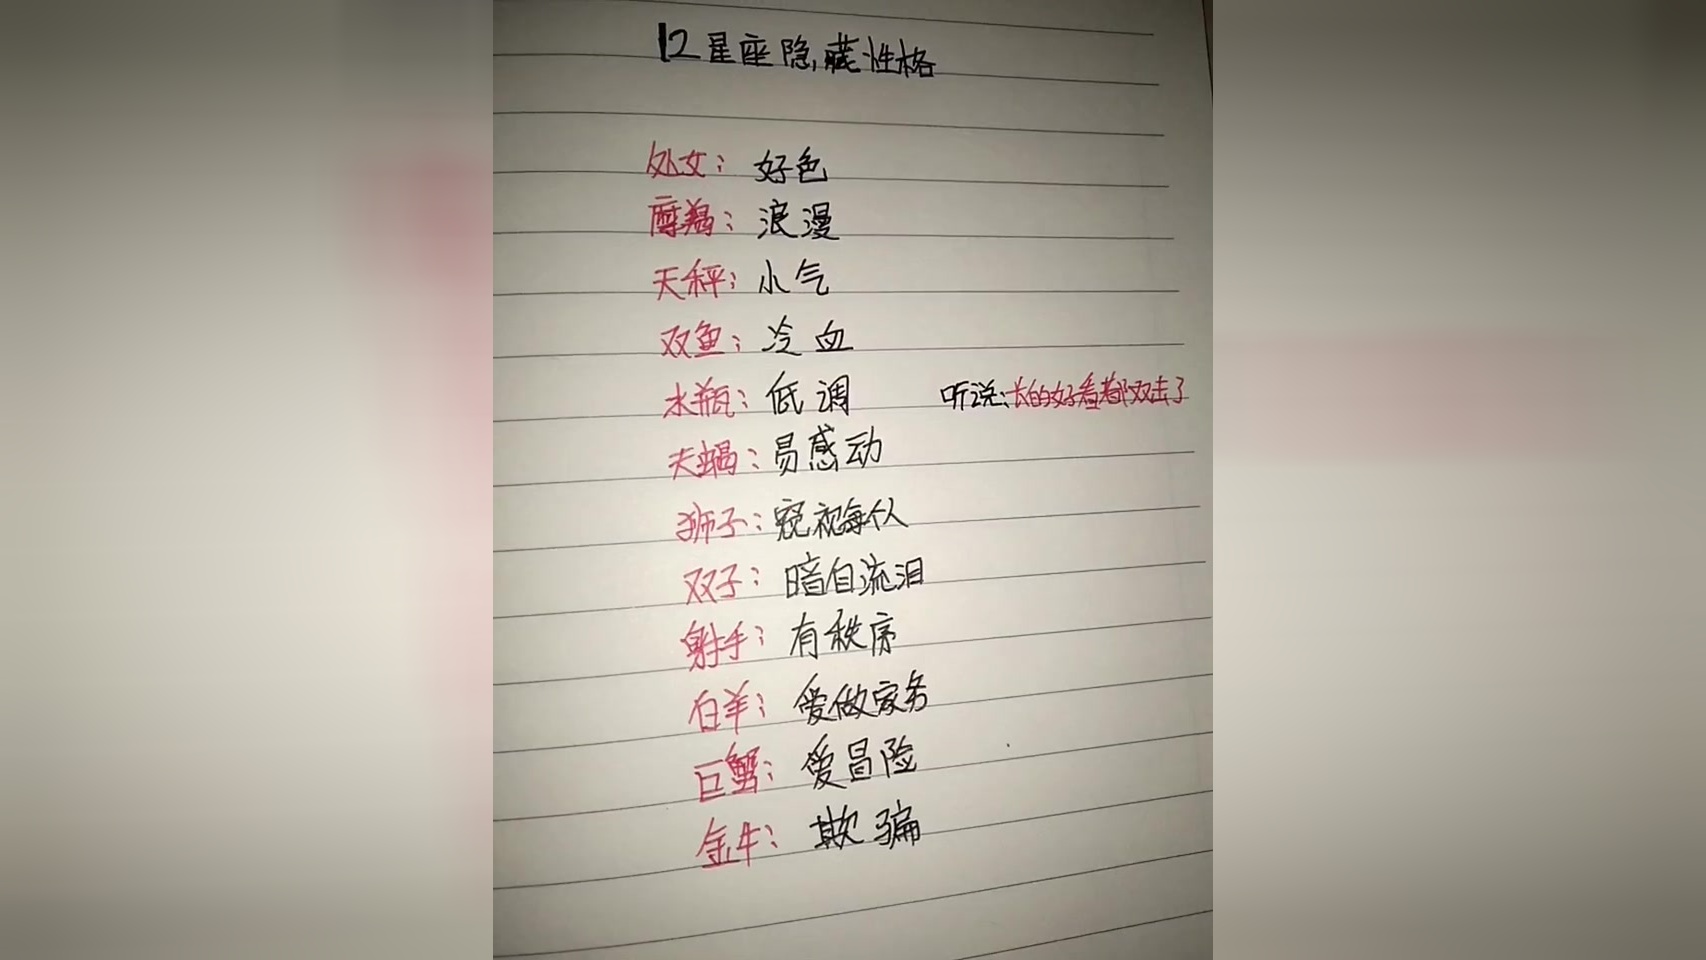 12星座隐藏性格
处女：好色
摩羯：浪漫
天秤：小气
双鱼：冷血
水瓶：低调
听说：长的好看都双击了
天蝎：易感动
狮子：窥视每个人
双子：暗自流泪
射手：有秩序
白羊：爱做家务
巨蟹：爱冒险
金牛：欺骗